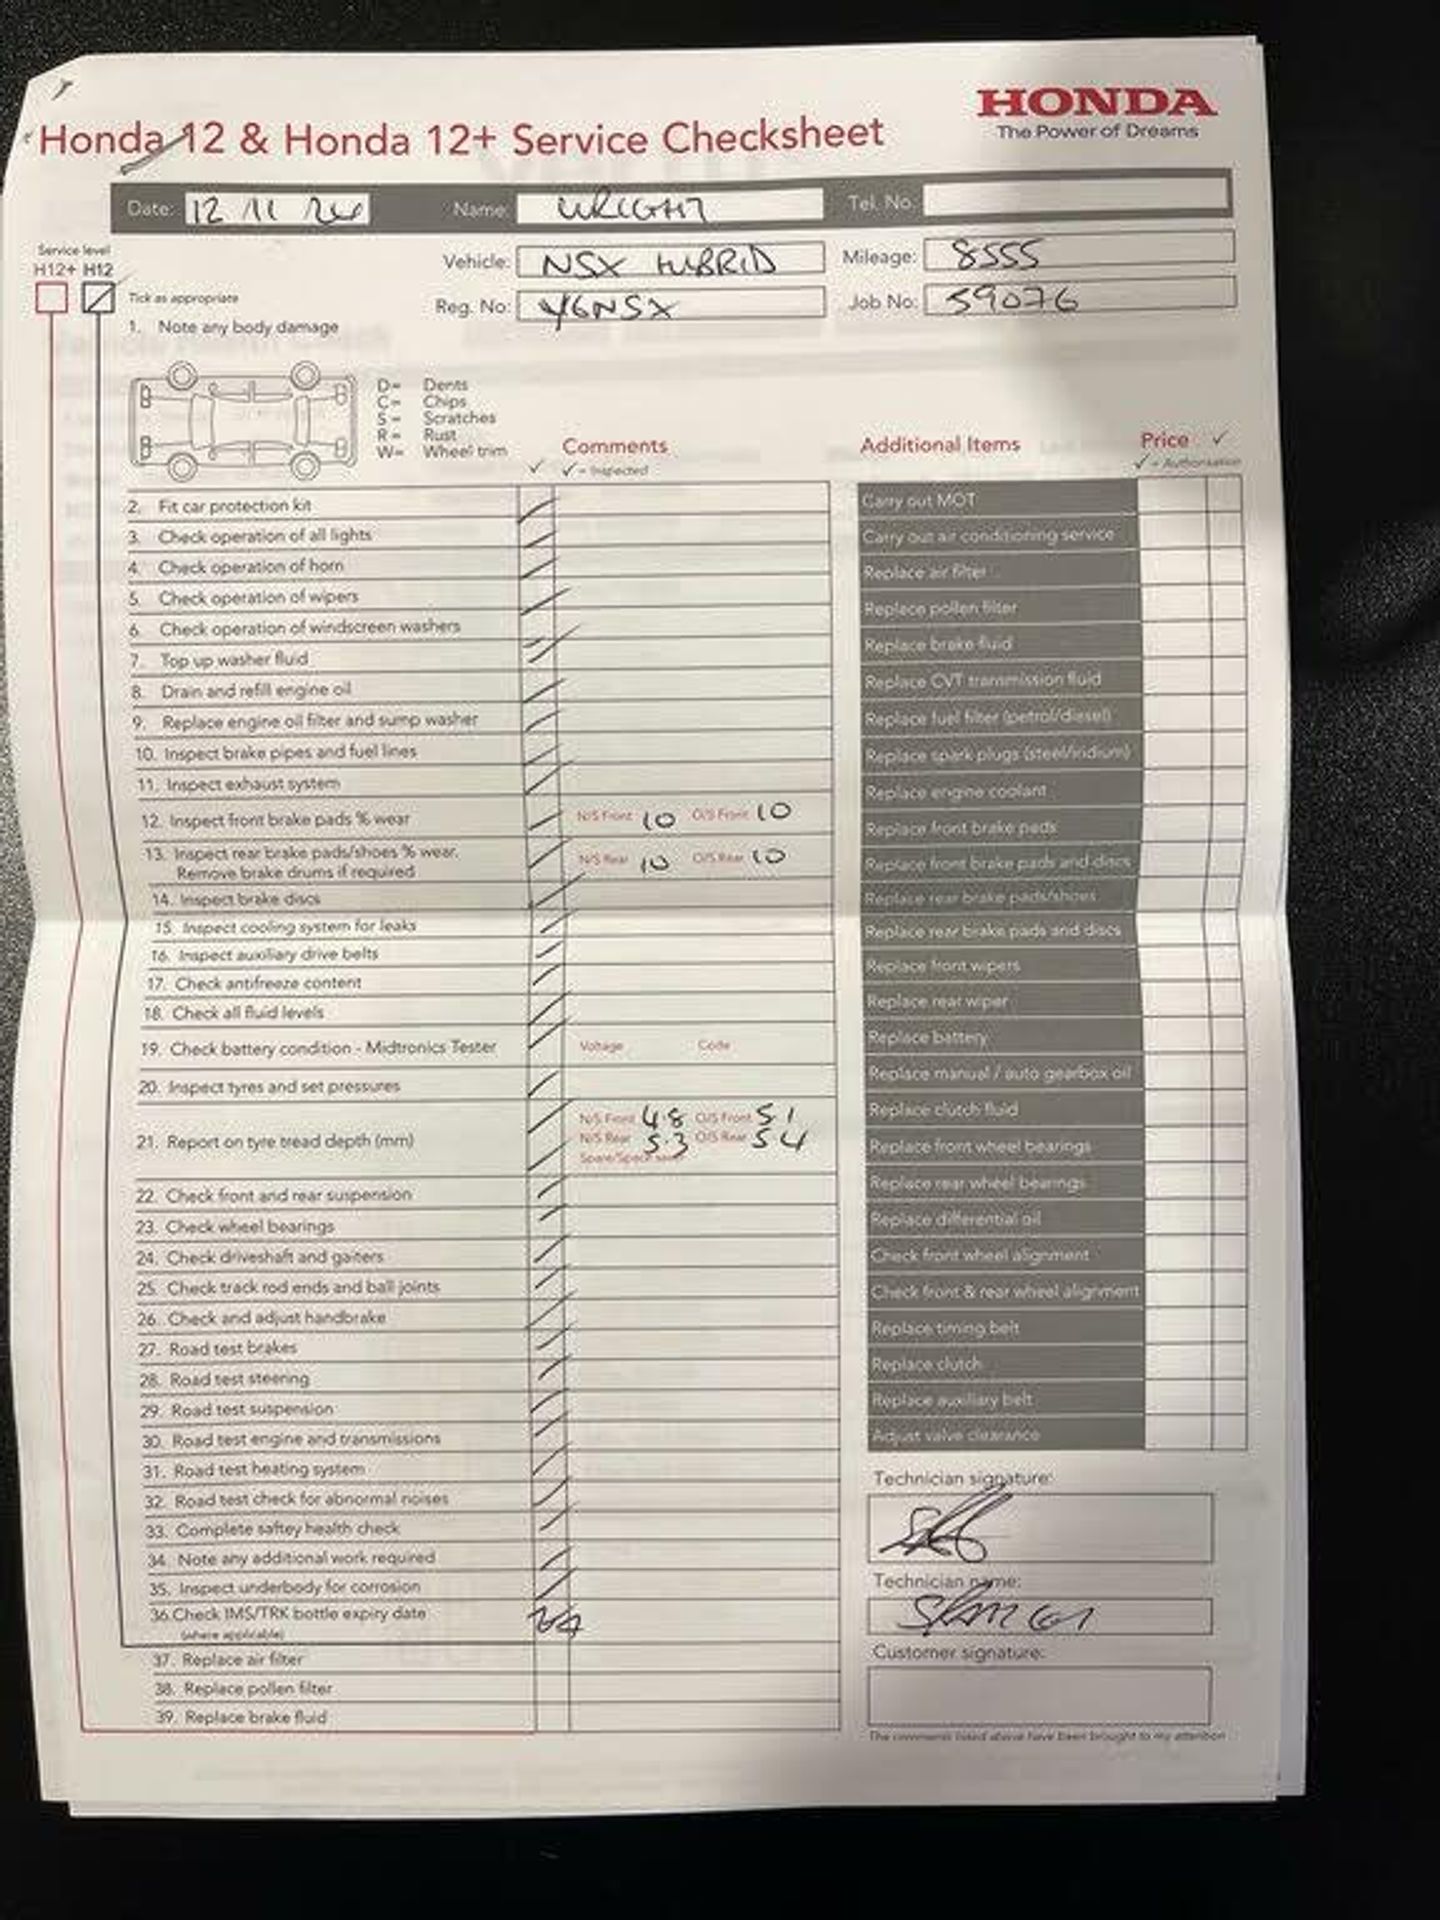 HONDA
The Power of Dreams
Honda 12 & Honda 12+ Service Checksheet
Date: 12 11 24 Name: WRIGHT Tel. No.
Service level
H12+ H12
Tick as appropriate
Vehicle: NSX HYBRID Mileage: 8555
Reg. No: Y6NSX Job No: 59076
1. Note any body damage
D= Dents
C= Chips
S= Scratches
R= Rust
W= Wheel trim
✓ Comments
✓ = Inspected
2. Fit car protection kit
3. Check operation of all lights
4. Check operation of horn
5. Check operation of wipers
6. Check operation of windscreen washers
7. Top up washer fluid
8. Drain and refill engine oil
9. Replace engine oil filter and sump washer
10. Inspect brake pipes and fuel lines
11. Inspect exhaust system
12. Inspect front brake pads % wear N/S Front 10 O/S Front 10
13. Inspect rear brake pads/shoes % wear. N/S Rear 10 O/S Rear 10
Remove brake drums if required
14. Inspect brake discs
15. Inspect cooling system for leaks
16. Inspect auxiliary drive belts
17. Check antifreeze content
18. Check all fluid levels
19. Check battery condition - Midtronics Tester Voltage Code
20. Inspect tyres and set pressures
21. Report on tyre tread depth (mm) N/S Front 4.8 O/S Front 5.1
N/S Rear 5.3 O/S Rear 5.4
22. Check front and rear suspension
23. Check wheel bearings
24. Check driveshaft and gaiters
25. Check track rod ends and ball joints
26. Check and adjust handbrake
27. Road test brakes
28. Road test steering
29. Road test suspension
30. Road test engine and transmissions
31. Road test heating system
32. Road test check for abnormal noises
33. Complete saftey health check
34. Note any additional work required
35. Inspect underbody for corrosion
36.Check IMS/TRK bottle expiry date
(where applicable)
37. Replace air filter
38. Replace pollen filter
39. Replace brake fluid
Additional Items Price ✓
✓ = Authorisation
Carry out MOT
Carry out air conditioning service
Replace air filter
Replace pollen filter
Replace brake fluid
Replace CVT transmission fluid
Replace fuel filter (petrol/diesel)
Replace spark plugs (steel/iridium)
Replace engine coolant
Replace front brake pads
Replace front brake pads and discs
Replace rear brake pads/shoes
Replace rear brake pads and discs
Replace front wipers
Replace rear wiper
Replace battery
Replace manual / auto gearbox oil
Replace clutch fluid
Replace front wheel bearings
Replace rear wheel bearings
Replace differential oil
Check front wheel alignment
Check front & rear wheel alignment
Replace timing belt
Replace clutch
Replace auxiliary belt
Adjust valve clearance
Technician signature:
Technician name:
Customer signature:
The comments listed above have been brought to my attention